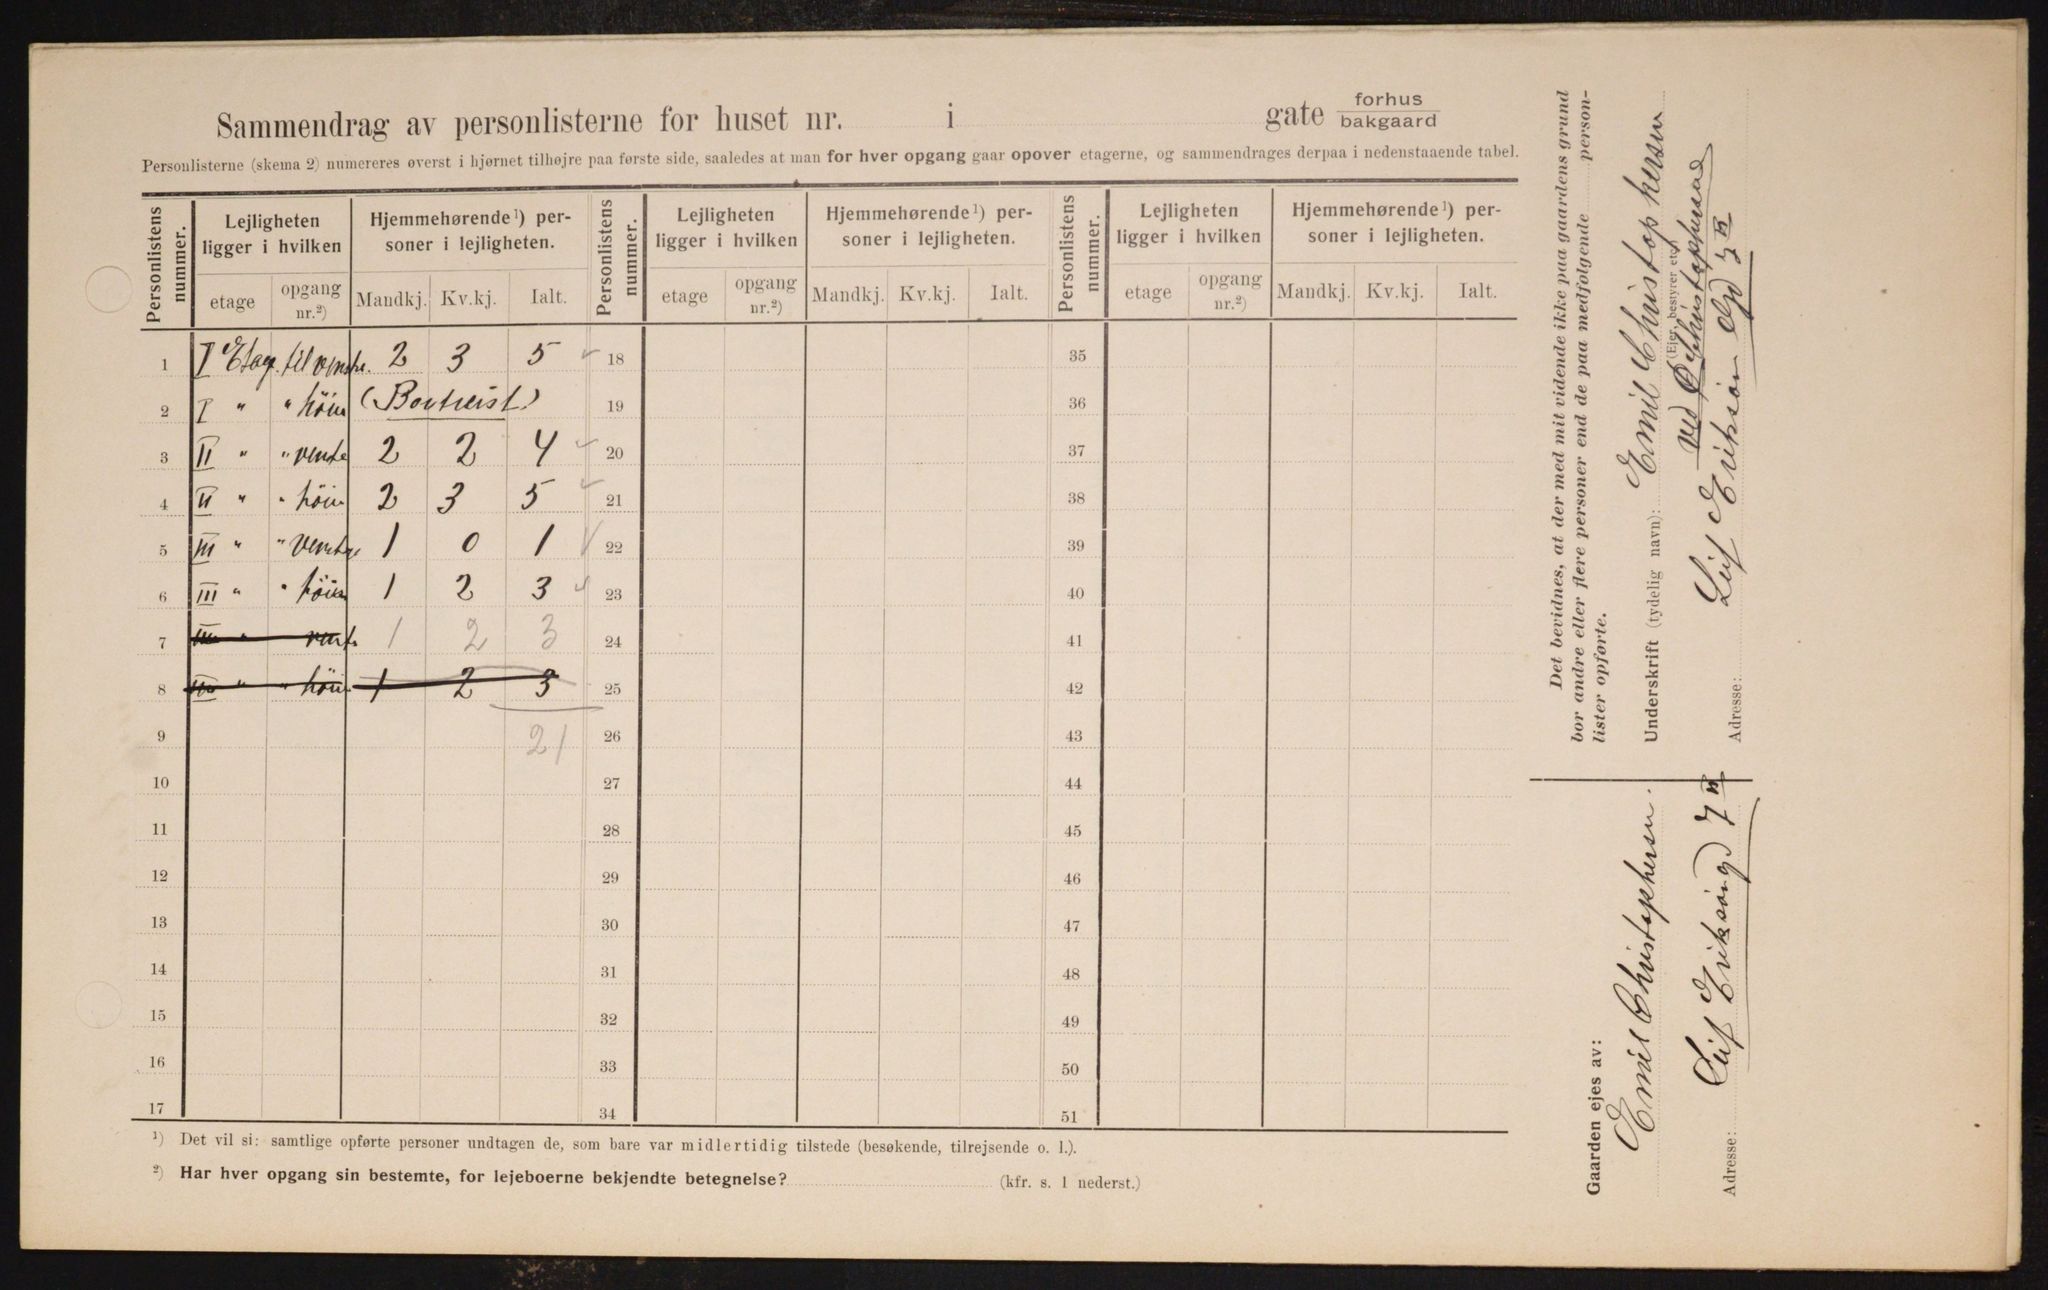 Sammendrag av personlisterne for huset nr. i gate forhus bakgaard
Personlisterne (skema 2) numereres øverst i hjørnet tilhøjre paa første side, saaledes at man for hver opgang gaar opover etagerne, og sammendrages derpaa i nedenstaaende tabel.
Personlistens nummer. Lejligheten ligger i hvilken Hjemmehørende¹) personer i lejligheten. Personlistens nummer. Lejligheten ligger i hvilken Hjemmehørende¹) personer i lejligheten. Personlistens nummer. Lejligheten ligger i hvilken Hjemmehørende¹) personer i lejligheten.
etage opgang nr.²) Mandkj. Kv.kj. Ialt. etage opgang nr.²) Mandkj. Kv.kj. Ialt. etage opgang nr.²) Mandkj. Kv.kj. Ialt.
1 I Etag. til venstre. 2 3 5 18 35
2 I " " höire (Bortreist) 19 36
3 II " " venste 2 2 4 20 37
4 II " " höire 2 3 5 21 38
5 III " " Venstre 1 0 1 22 39
6 III " " höire 1 2 3 23 40
7 IIII " venste 1 2 3 24 41
8 IIII " " höire 1 2 3 25 42
9 21 26 43
10 27 44
11 28 45
12 29 46
13 30 47
14 31 48
15 32 49
16 33 50
17 34 51
¹) Det vil si: samtlige opførte personer undtagen de, som bare var midlertidig tilstede (besøkende, tilrejsende o. l.).
²) Har hver opgang sin bestemte, for lejeboerne bekjendte betegnelse? (kfr. s. 1 nederst.)
Det bevidnes, at der med mit vidende ikke paa gaardens grund
bor andre eller flere personer end de paa medfølgende person-
lister opførte.
Underskrift (tydelig navn): Emil Christophersen
(Ejer, bestyrer etc.)
ved Christophersen
Adresse: Leif Eriksön Gd 7 II
Gaarden ejes av:
Emil Christophersen.
Adresse: Leif Eriksöngd 7 II